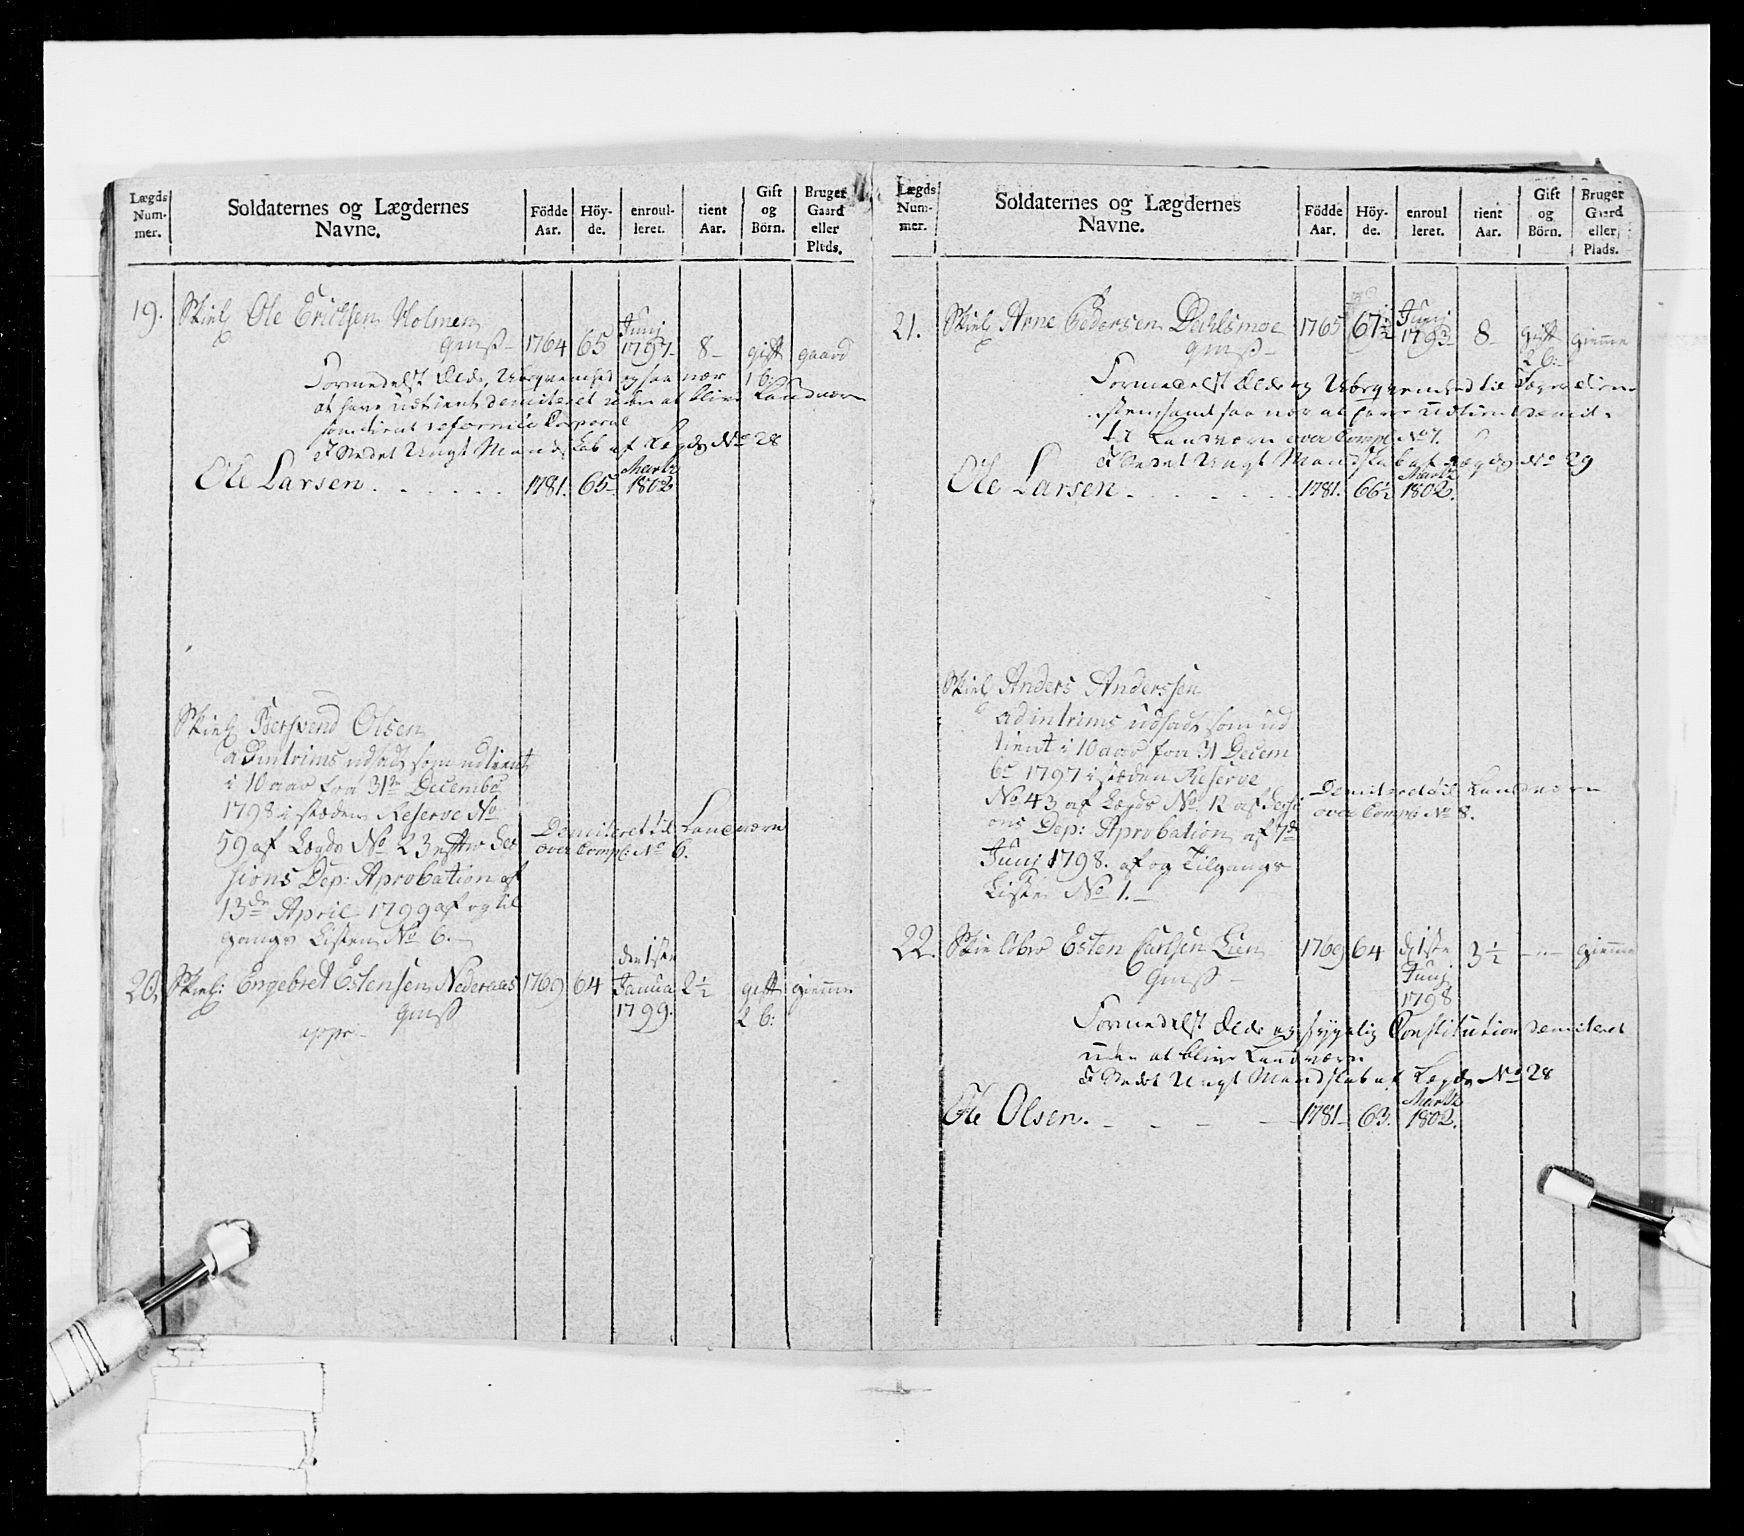 Lægds Num- mer.
Soldaternes og Lægdernes Navne.
Födde Aar.
Höy- de.
enroul- leret.
tient Aar.
Gift og Börn.
Bruger Gaard eller Plads.
19. Skiel Ole Erichsen Holmen 1764 65 Junj 1797 8 gift 1 b: gaard
Formedelst Elde, Ubeqvemhed og saa nær
at have udtient demiteret uden at blive Landværn
i Stedet Ungt Mandskab af Lægds No 28
Ole Larsen. 1781. 65 Martz 1802
Skiel Bersvend Olsen
adintrims udsadt som udtient
i 10 aar fra 31te Decembr
1798 i steden Reserve No
59 af Lægds No 23 efter Ses
sions Dep: Aprobation af
13de April 1799 af og til
gangs Listen No 6.
Demiteret til Landværn
over Compl: No 6.
20. Skiel: Engebret Estensen Nederaas 1769 64 den 1ste Janua 1799. 2½ gift 2 b: giemme
Lægds Num- mer.
Soldaternes og Lægdernes Navne.
Födde Aar.
Höy- de.
enroul leret.
tient Aar.
Gift og Börn.
Bruger Gaard eller Plads.
21. Skiel Arne Pedersen Dahlsmoe 1765 67½ Junj 1793 8 gift 2 b: giemme
Formedelst Elde og Ubeqvemhed til
saa nær at have udtient demit.
til Landværn over Compl: No 7.
i Stedet Ungt Mandskab af Lægds No 29
Ole Larsen. 1781. 66½ Martz 1802.
Skiel Anders Anderssen
adintrims udsadt som ud
tient i 10 aar fra 31 Decem
br 1797 i steden Reserve
No 43 af Lægds No 12 af Sessi
ons Dep: Aprobation af 7de
Junj 1798. af og Tilgangs
Listen No 1.
Demiteret til Landværn
over Compl: No 8.
22. Skielöber Esten Carlsen Lien 1769 64 d 1ste Junj 1798 3½ giemme
Formedelst Elde og sygelig Constitution demiteret
uden at blive Landværn
i Stedet Ungt Mandskab af Lægds No 28
Ole Olsen. 1781 63. Martz 1802.